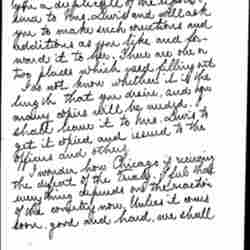 a duplicate of the report
to Mrs. Lewis and will ask
you to make such corrections and
additions as you like and for-
ward it to her. There are one or
two places which need filling out
I do not know whether it is the
length that you desire, and
many copies will be needed. I
shall leave it to Mrs. Lewis to
get it copied, and issued to the
officers and others.
I wonder how Chicago is
the defeat of the treaty. I feel that
everything depends on the reaction
of the country now. Unless it comes
soon, good and hard, we shall